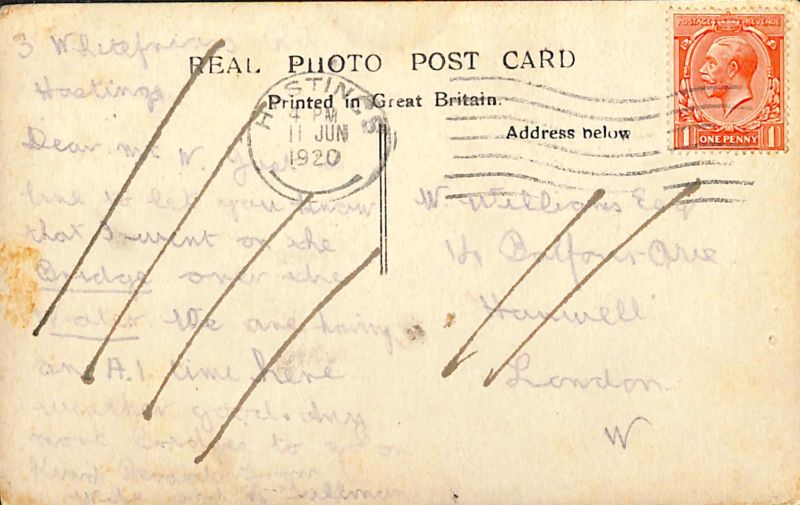 REAL PHOTO POST CARD
Printed in Great Britain.
Address below
POSTAGE REVENUE
1 ONE PENNY 1
HASTINGS
4 PM
11 JUN
1920
3 Whitefriars
Hastings
Dear Mr W. Just a
line to let you know
that I went on the
Bridge over the
Water. We are having
an A.1. time here
weather good. Any
more Bridges to go on
Kind Regards from
W. Williams Esq
14 Balfour Ave
Hanwell
London
W